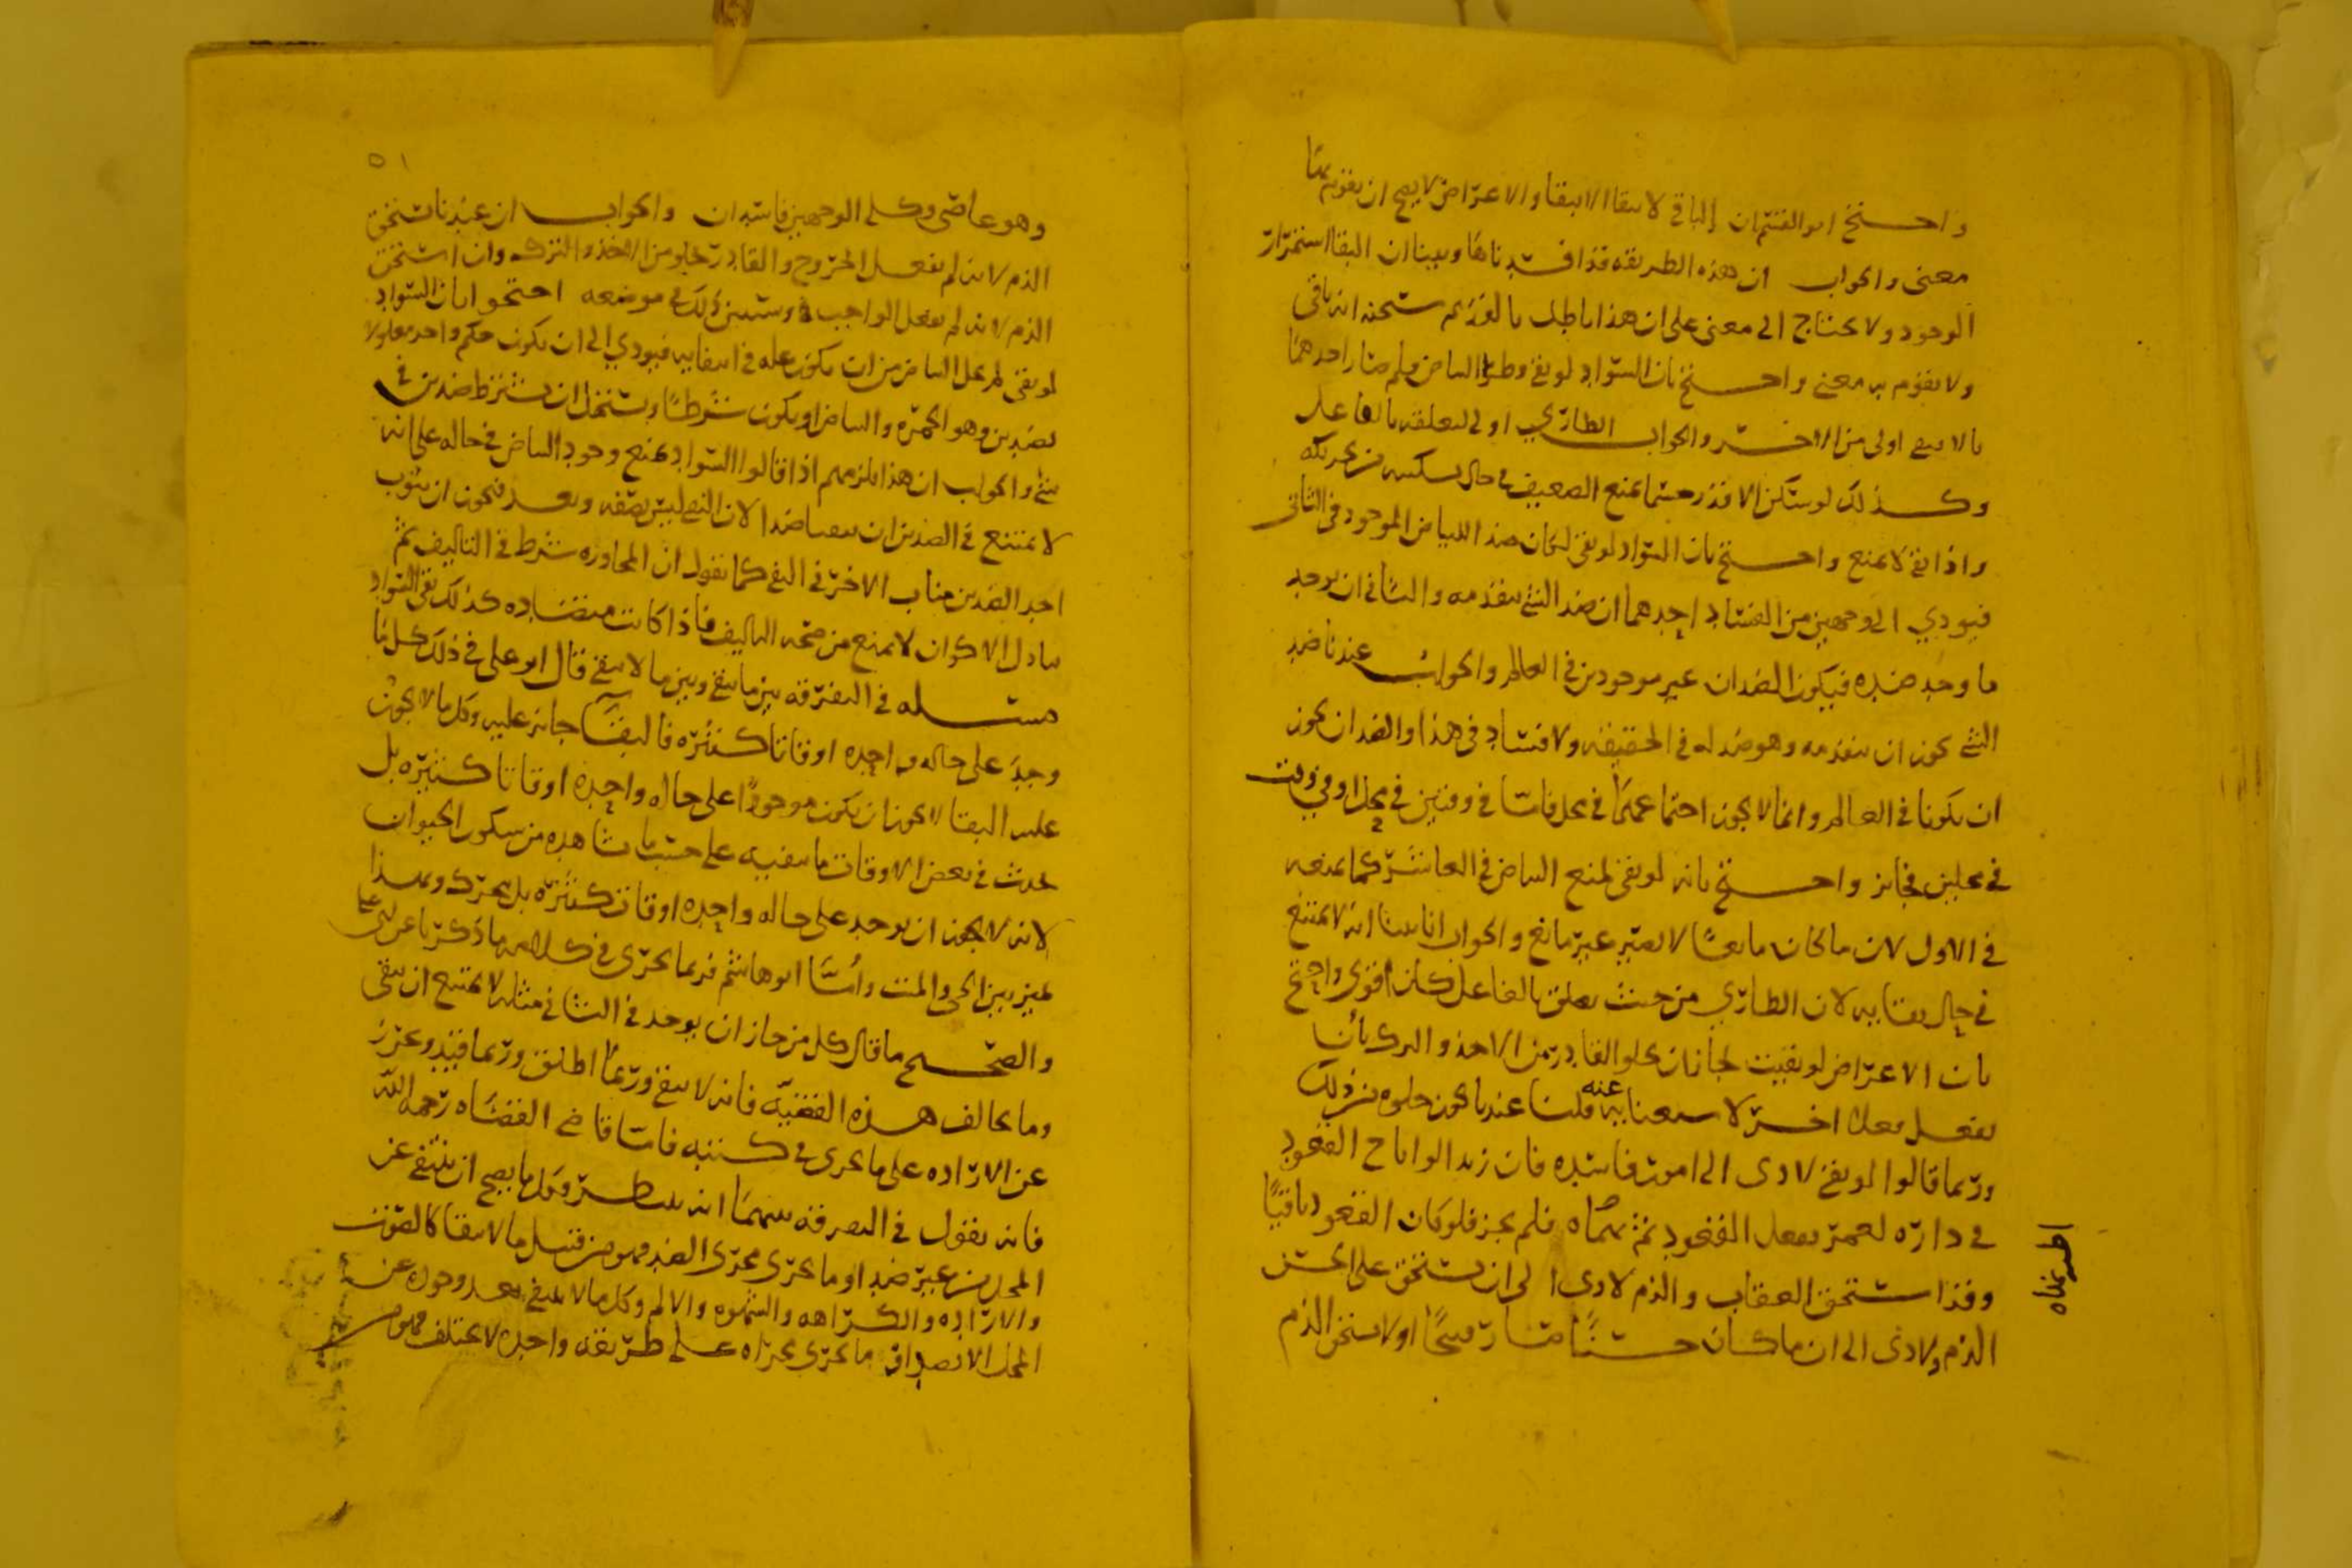 واحتج ابو القسم بان الباقي لا يبقا الا ببقا والاعراض لا يصح ان يقوم بها
معنى والجواب ان هذه الطريقه قد افسدناها وبينا ان البقا استمرار
الوجود ولا يحتاج الى معنى على ان هذا باطل بالقديم سبحنه انه باقي
ولا يقوم به معنى واحتج بان السواد لو بقي وطرا البياض فلم صار احدهما
بالا يبقى اولى من الاخر والجواب الطاري اولى لتعلقه بالفاعل
وكذلك لو سكن الاقدر جسما يمنع الضعيف في حال تسكينه من تحريكه
واذا بقي لا يمنع واحتج بان السواد لو بقي لكان ضد البياض الموجود في الثاني
فيودي الى وجهين من الفساد احدهما ان ضد الشي يتقدمه والثاني ان يوجد
ما وجد ضده فيكون الضدان غير موجودين في العالم والجواب عندنا ضد
الشي يجوز ان يتقدمه وهو ضد له في الحقيقه ولا فساد في هذا والضدان يجوز
ان يكونا في العالم وانما لا يجوز اجتماعهما في محل فاما في وقتين في محل او في وقت
في محلين فجائز واحتج بانه لو بقي لمنع البياض في العاشر كما يمنعه
في الاول لان ما كان مانعا لا يصير غير مانع والجواب انا بينا انه لا يمتنع
في حال بقايه لان الطاري من حيث تعلق بالفاعل كان اقوى واحتج
بان الاعراض لو بقيت لجاز ان يخلو القادر من الاخذ والترك بان
يفعل فعلا اخر لا يستغنا به عنه قلنا عندنا يجوز خلوه من ذلك
وربما قالوا لو بقي لادى الى امور فاسده فان زيدا لو اباح القعود
في داره لعمر ففعل القعود ثم نهاه فلم يخرج فلو كان القعود باقيا
وقد استحق العقاب والذم لادى الى ان يستحق على الحسن
الذم ولادى الى ان ما كان حسنا صار قبيحا او لا يستحق الذم
وهو عاصي وكلى الوجهين فاسدان والجواب ان عندنا يستحق
الذم لانه لم يفعل الخروج والقادر يخلو من الاخذ والترك وان استحق
الذم لانه لم يفعل الواجب وسنبين ذلك في موضعه احتجوا بان السواد
لو بقي لم يخل البياض من ان يكون عله في انتفايه فيودي الى ان يكون حكم واحد معلولا
لضدين وهو الحمره والبياض او يكون شرطا ويستحيل ان يشترط ضدين في
شي والجواب ان هذا يلزمهم اذا قالوا السواد يمنع وجود البياض في حاله على انه
لا يمتنع في الضدين ان ينفيا ضدا لان النفي ليس بصفه وبعد فيجوز ان ينوب
احد الضدين مناب الاخر في النفي كما نقول ان المجاوره شرط في التاليف ثم
تبادل الاكوان لا يمنع من صحه التاليف فاذا كانت متضاده كذلك نفي السواد
مسله في التفرقه بين ما يبقى وبين ما لا يبقى قال ابو علي في ذلك كل ما
وجد على حاله واحده اوقاتا كثيره فالبقا جائز عليه وكل ما لا يجوز
عليه البقا لا يجوز ان يكون موجودا على حاله واحده اوقاتا كثيره بل
يحدث في بعض الاوقات ما ينفيه على حسب ما نشاهده من سكون الحيوان
لانه لا يجوز ان يوجد على حاله واحده اوقاتا كثيره بل يتحرك وبهذا
نميز بين الحي والميت واما ابو هاشم فربما يجري في كلامه ما ذكرنا عن ابي علي
والصحيح ما قال كل من جاز ان يوجد في الثاني مثله لا يمتنع ان يبقى
وما يخالف هذه القضيه فانه لا يبقى وربما اطلق وربما قيد وتحرز
عن الاراده على ما يجري في كتبه فاما قاضي القضاه رحمه الله
فانه يقول في التفرقه بينهما انه ينظر فكل ما يصح ان ينتفي عن
المحل من غير ضد او ما يجري مجرى الضد فهو من قبيل ما لا يبقا كالصوت
والاراده والكراهه والشهوه والالم وكل ما لا ينتفي بعد وجوده عن
المحل الا بضد او ما يجري مجراه على طريقه واحده لا يختلف فهو